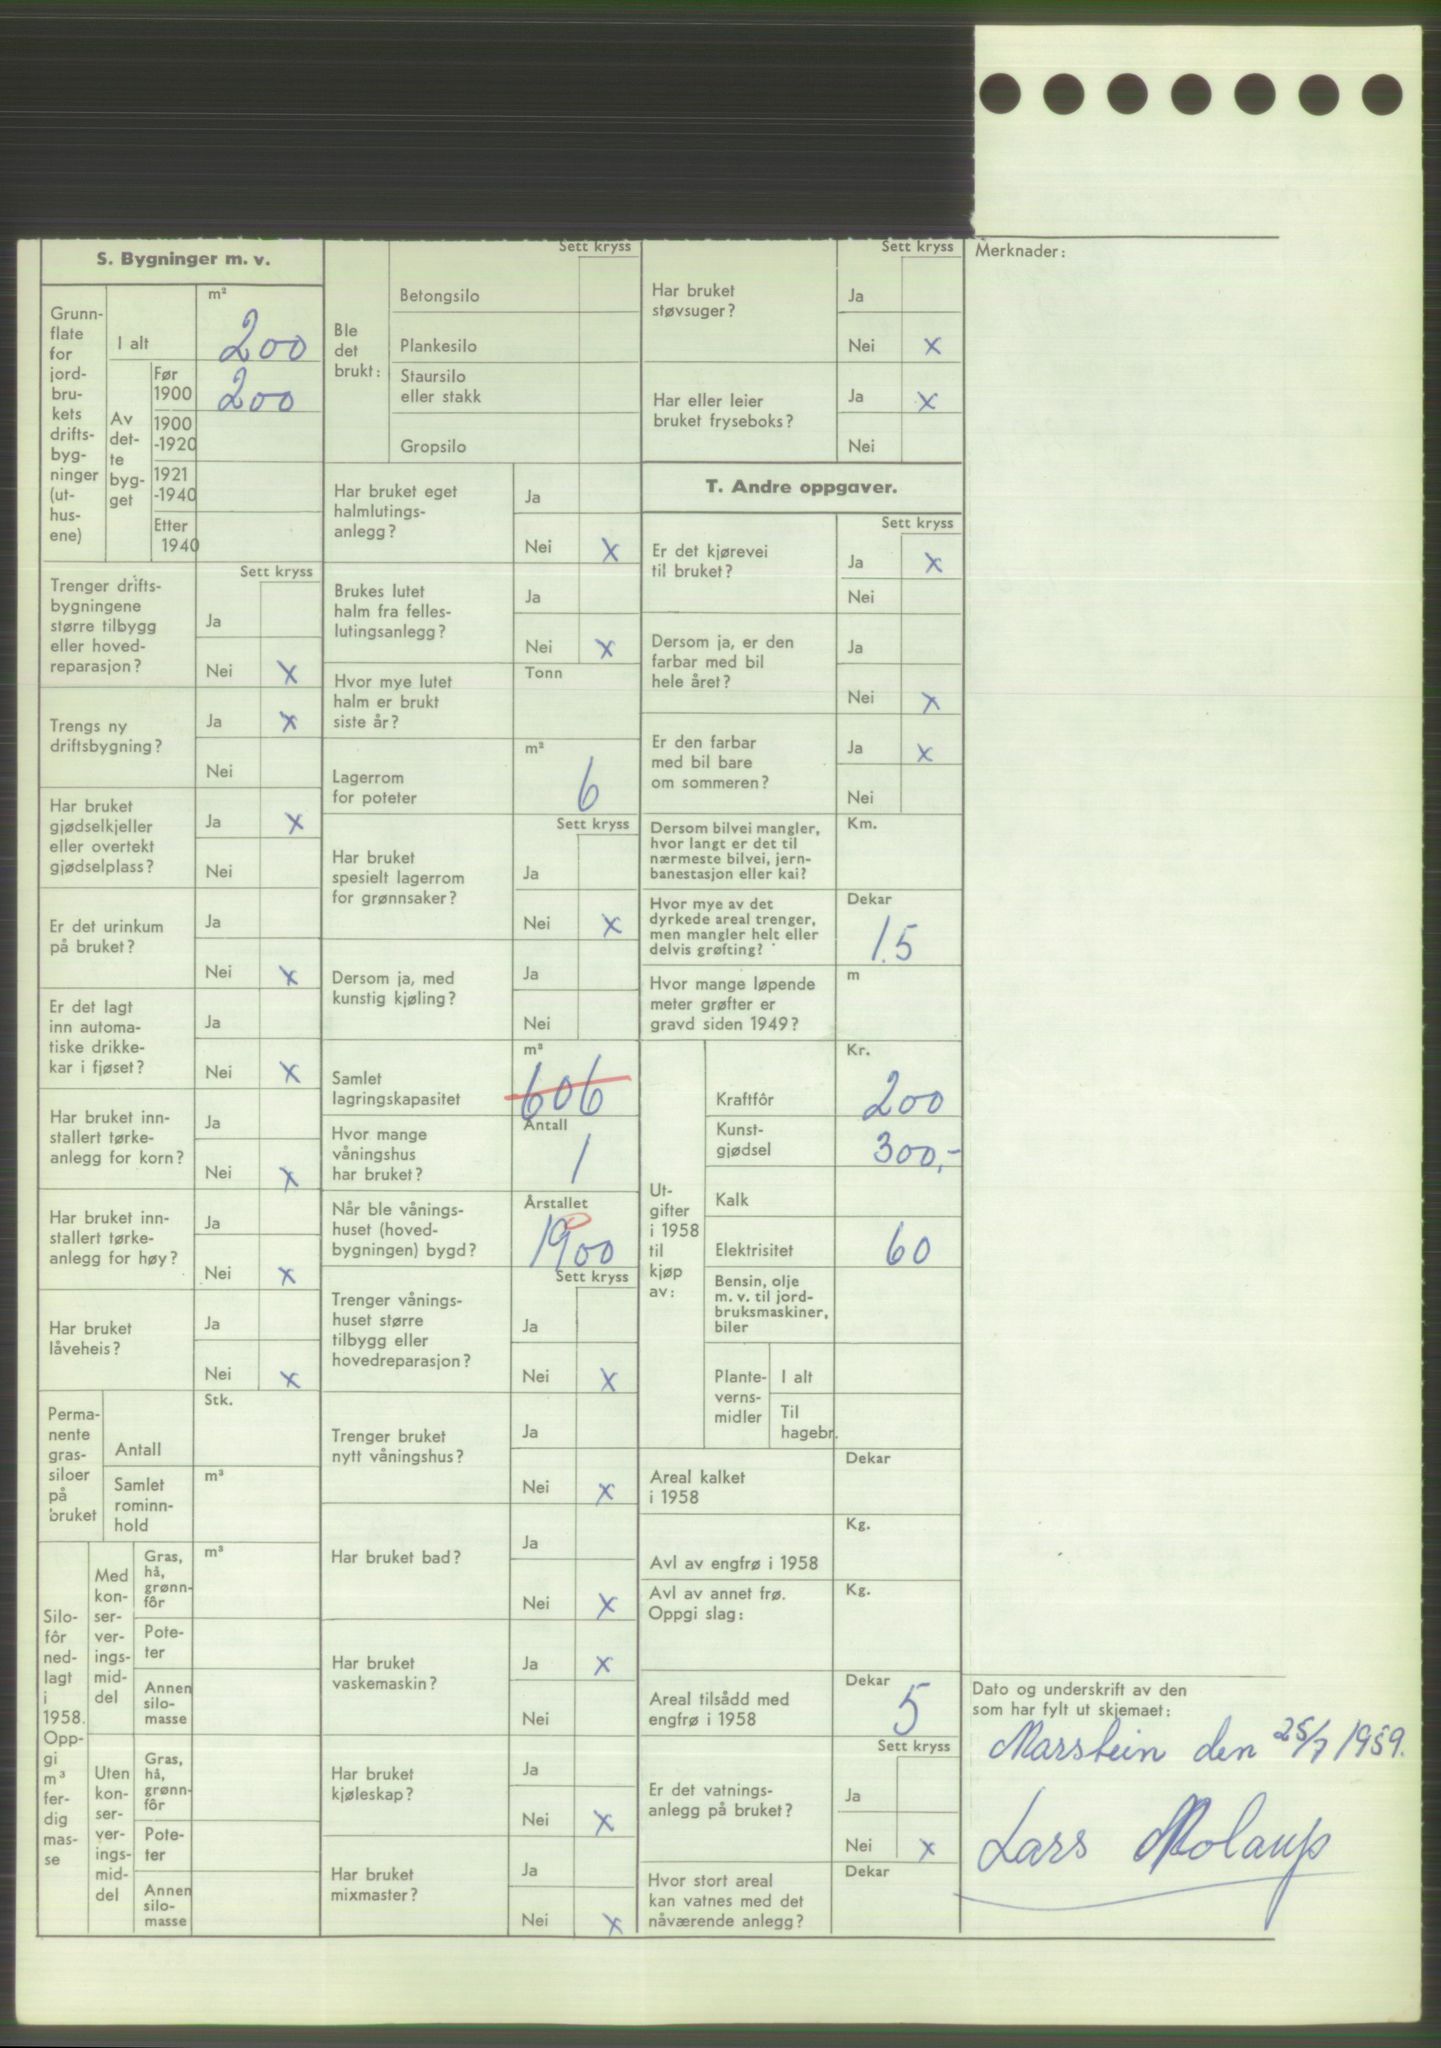 S. Bygninger m. v.
Grunn-
flate
for
jord-
bru-
kets
drifts-
byg-
ninger
(ut-
hus-
ene)
I alt
m²
200
Av
det-
te
byg-
get
Før
1900
200
1900
-1920
1921
-1940
Etter
1940
Sett kryss
Trenger drifts-
bygningene
større tilbygg
eller hoved-
reparasjon?
Ja
Nei x
Trengs ny
driftsbygning?
Ja x
Nei
Har bruket
gjødselkjeller
eller overtekt
gjødselplass?
Ja x
Nei
Er det urinkum
på bruket?
Ja
Nei x
Er det lagt
inn automa-
tiske drikke-
kar i fjøset?
Ja
Nei x
Har bruket inn-
stallert tørke-
anlegg for korn?
Ja
Nei x
Har bruket inn-
stallert tørke-
anlegg for høy?
Ja
Nei x
Har bruket
låveheis?
Ja
Nei x
Perma-
nente
gras-
siloer
på
bruket
Antall
Stk.
Samlet
rominn-
hold
m³
Silo-
fôr
ned-
lagt
i
1958.
Opp-
gi
m³
fer-
dig
mas-
se
Med
kon-
ser-
ver-
ings-
mid-
del
Gras,
hå,
grønn-
fôr
m³
Pote-
ter
Annen
silo-
masse
Uten
kon-
ser-
ver-
ings-
mid-
del
Gras,
hå,
grønn-
fôr
Pote-
ter
Annen
silo-
masse
Sett kryss
Ble
det
brukt:
Betongsilo
Plankesilo
Staursilo
eller stakk
Gropsilo
Har bruket eget
halmlutings-
anlegg?
Ja
Nei x
Brukes lutet
halm fra felles-
lutingsanlegg?
Ja
Nei x
Hvor mye lutet
halm er brukt
siste år?
Tonn
Lagerrom
for poteter
m²
6
Sett kryss
Har bruket
spesielt lagerrom
for grønnsaker?
Ja
Nei x
Dersom ja, med
kunstig kjøling?
Ja
Nei
Samlet
lagringskapasitet
m²
606
Hvor mange
våningshus
har bruket?
Antall
1
Når ble vånings-
huset (hoved-
bygningen) bygd?
Årstallet
1900
Sett kryss
Trenger vånings-
huset større
tilbygg eller
hovedreparasjon?
Ja
Nei x
Trenger bruket
nytt våningshus?
Ja
Nei x
Har bruket bad?
Ja
Nei x
Har bruket
vaskemaskin?
Ja x
Nei
Har bruket
kjøleskap?
Ja
Nei x
Har bruket
mixmaster?
Ja
Nei x
Sett kryss
Har bruket
støvsuger?
Ja
Nei x
Har eller leier
bruket fryseboks?
Ja x
Nei
T. Andre oppgaver.
Sett kryss
Er det kjørevei
til bruket?
Ja x
Nei
Dersom ja, er den
farbar med bil
hele året?
Ja
Nei x
Er den farbar
med bil bare
om sommeren?
Ja x
Nei
Dersom bilvei mangler,
hvor langt er det til
nærmeste bilvei, jern-
banestasjon eller kai?
Km.
Hvor mye av det
dyrkede areal trenger,
men mangler helt eller
delvis grøfting?
Dekar
1.5
Hvor mange løpende
meter grøfter er
gravd siden 1949?
m
Ut-
gifter
i 1958
til
kjøp
av:
Kr.
Kraftfôr 200
Kunst-
gjødsel 300,-
Kalk
Elektrisitet 60
Bensin, olje
m. v. til jord-
bruksmaskiner,
biler
Plante-
verns-
midler
I alt
Til
hagebr.
Areal kalket
i 1958
Dekar
Avl av engfrø i 1958
Kg.
Avl av annet frø.
Oppgi slag:
Kg.
Areal tilsådd med
engfrø i 1958
Dekar
5
Sett kryss
Er det vatnings-
anlegg på bruket?
Ja
Nei x
Hvor stort areal
kan vatnes med det
nåværende anlegg?
Dekar
Merknader:
Dato og underskrift av den
som har fylt ut skjemaet:
Marstein den 25/7 1959.
Lars